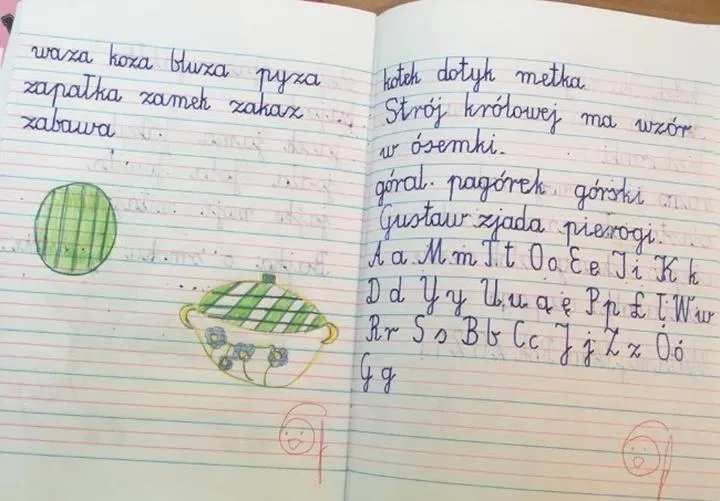 waza koza bluza pyza
zapałka zamek zakaz
zabawa
kotek dotyk metka
Strój królowej ma wzór
w ósemki.
góral. pagórek górski
Gustaw zjada pierogi.
A a M m T t O o E e I i K k
D d Y y U u ą ę P p Ł ł W w
R r S s B b C c J j Z z Ó ó
G g